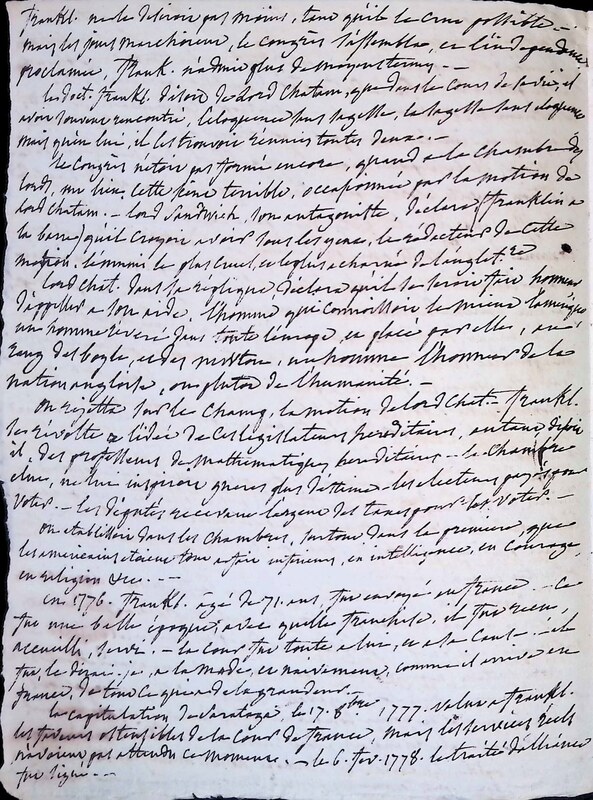 frankl. ne le desiroit pas moins, tant qu'il le crut possible. —
mais les jours marcherent, le congrès s'assembla, et l'independance
proclamée, frank. n'admit plus de moyen terme. —
le doct. frankl. disoit de Lord Chatam, que dans le cours de sa vie, il
avoit souvent rencontré, l'eloquence sans sagesse, la sagesse sans eloquence
mais qu'en lui, il les trouvoit réunies toutes deux. —
le Congrès n'etoit pas formé encore, quand a la chambre des
lords, eut lieu, cette scene terrible, occasionnée par la motion de
lord Chatam. — lord Sandwich, son antagoniste, déclara (franklin a
la barre) qu'il croyoit avoir sous les yeux, le rédacteur de cette
motion, l'ennemi le plus cruel, et le plus acharné de l'anglet.re
lord Chat. dans sa replique, declara qu'il se feroit honneur
d'appeller a son aide, l'homme qui connoissoit le mieux l'amérique
un homme réveré dans toute l'europe, et placé par elle, au
rang des boyle, et des newton, un homme l'honneur de la
nation angloise, ou plutot de l'humanité. —
on rejetta sur le champ, la motion de lord Chat. — frankl.
se révolta a l'idée de ces législateurs hereditaires, autant disoit
il, des professeurs de mathematiques hereditaires — la chambre
elue, ne lui inspiroit gueres plus d'estime — les electeurs payés pour
voter — les députés recevant l'argent des taxes pour les voter. —
on etablissoit dans les chambres, surtout dans la premiere, que
les americains etoient tout a fait inferieurs, en intelligence, en courage,
en religion &c. — —
en 1776. frankl. agé de 71. ans, fut envoyé en france. — Ce
fut une belle époque; avec quelle franchise, il fut reçu,
accueilli, servi. — la cour fut toute a lui, et a sa cause — il
fut, le dirai-je, a la mode, et naivement, comme il arrive en
france, de tout ce qui a de la grandeur.
la capitulation de Saratoga, le 17. 8.bre 1777. valut a frankl.
les faveurs ostensibles de la Cour de france, mais les services réels
n'avoient pas attendu ce moment. — le 6. fev. 1778. le traité d'alliance
fut signé — —